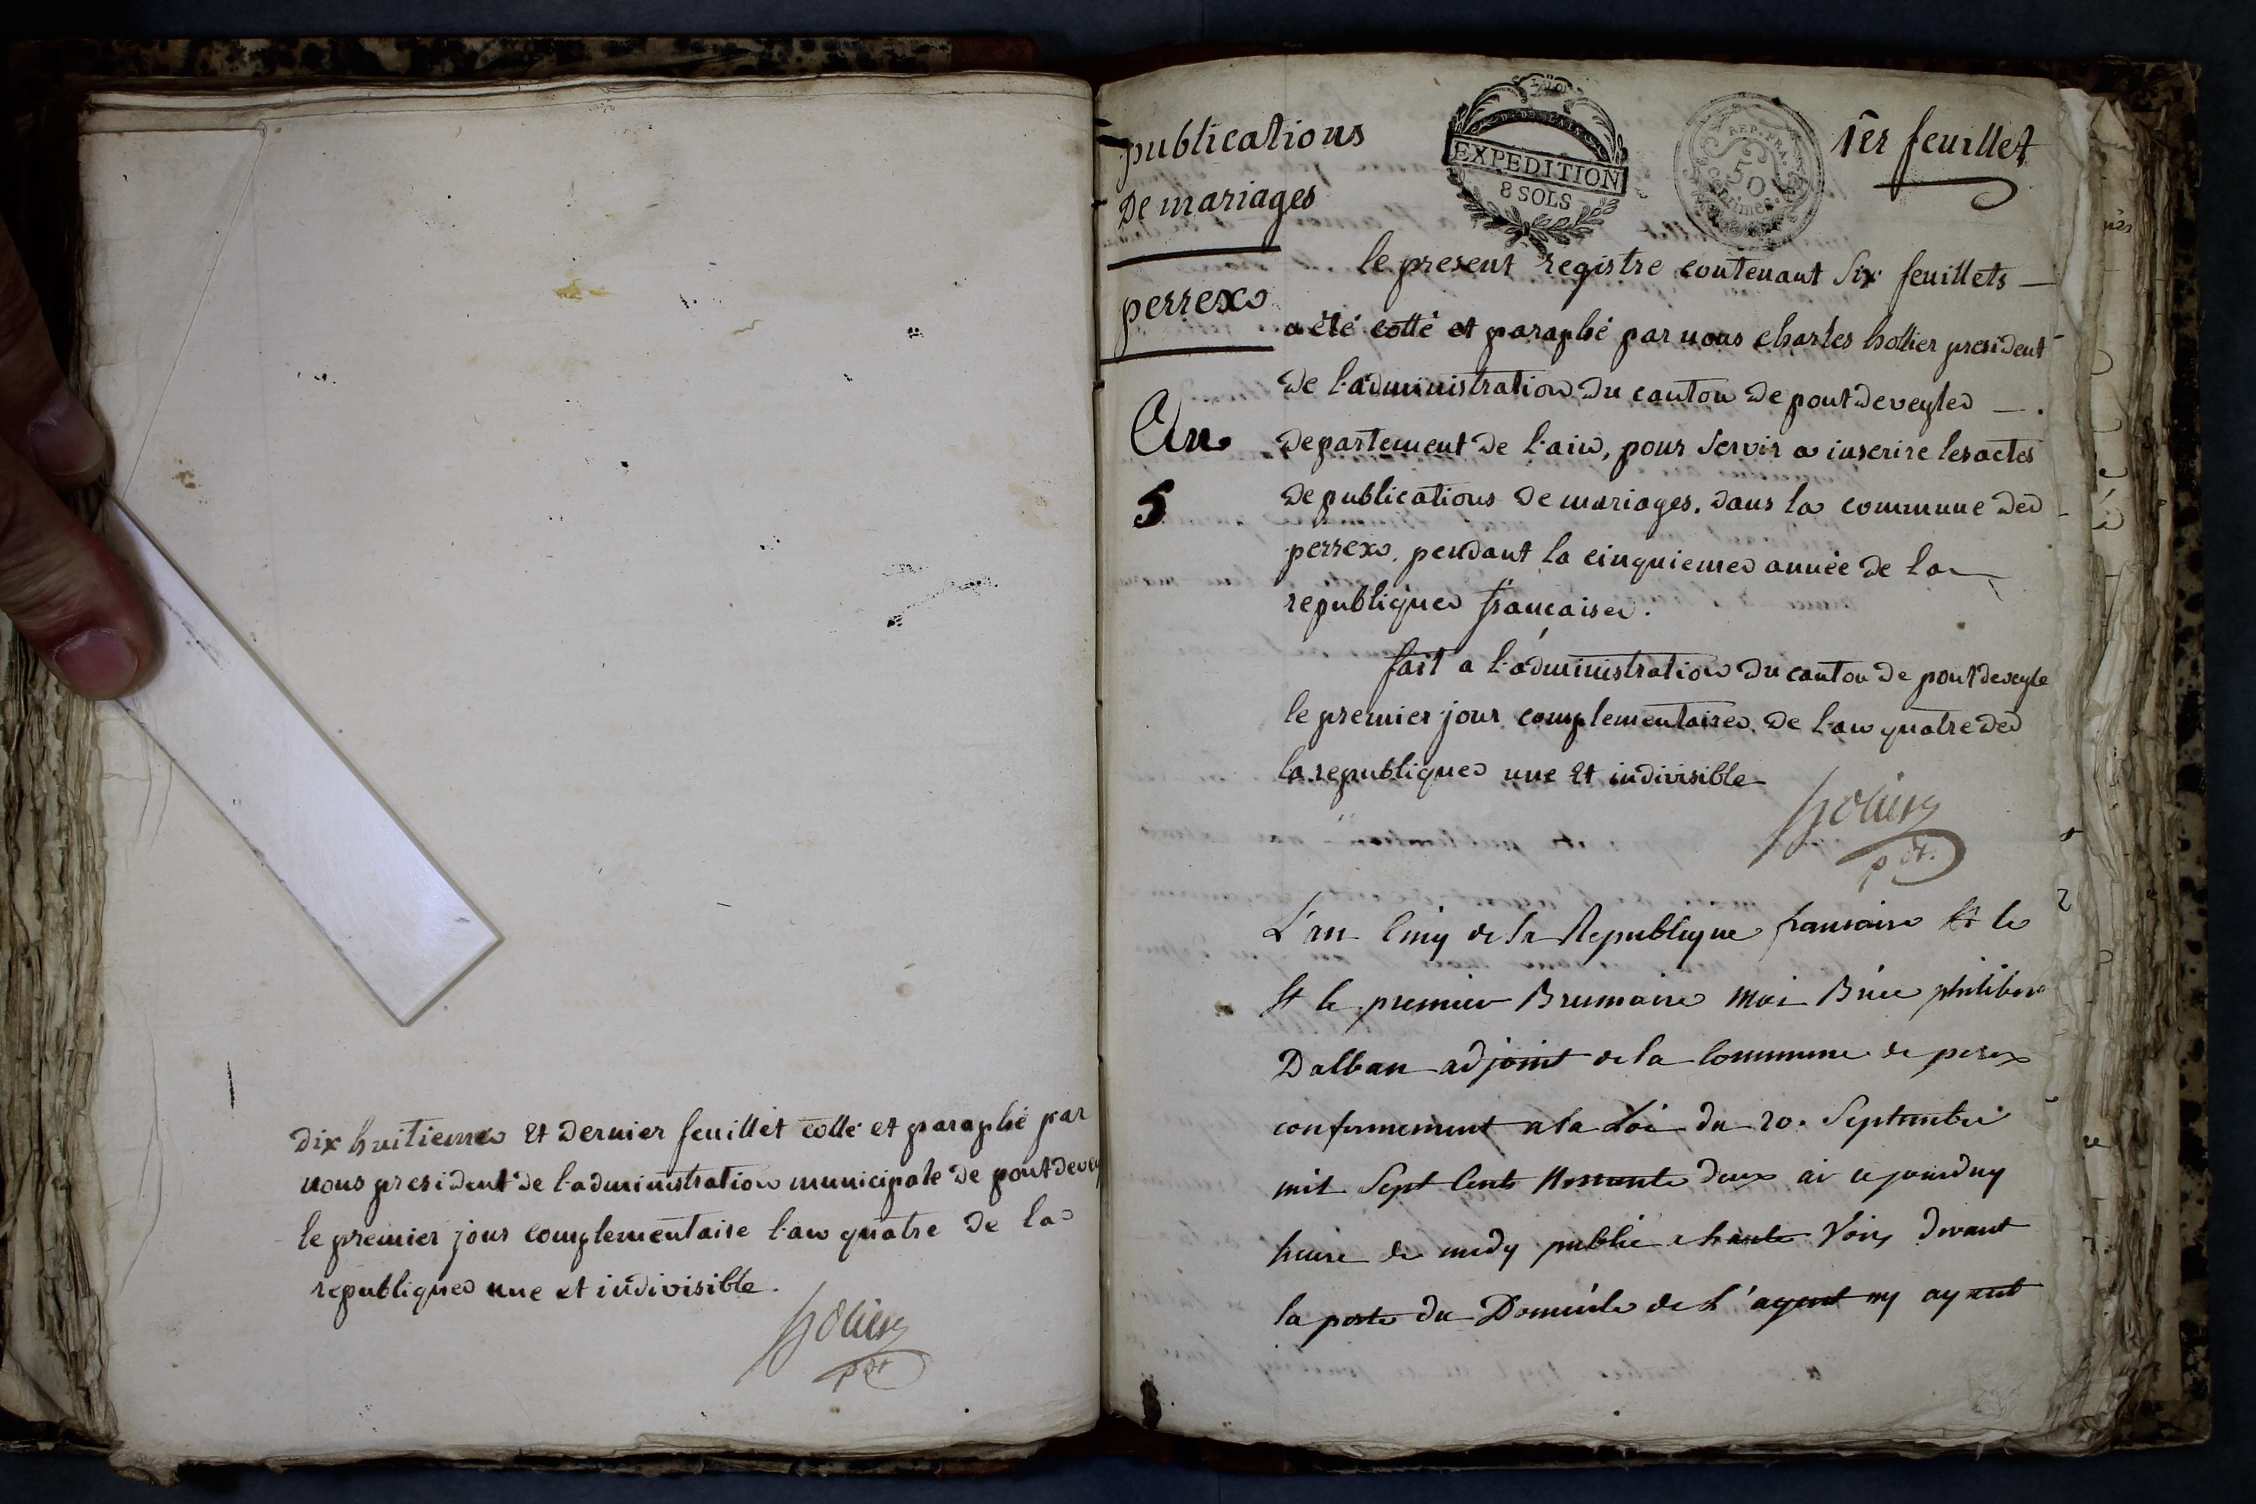 dix huitieme et dernier feuillet cotté et paraphé par
nous president de l'administration municipale de pontdevey
le premier jour complementaire l'an quatre de la
republique une et indivisible.
hollier
pdt
publications
de mariages
perrex
An
5
EXPEDITION
8 SOLS
REP. FRA
50
1er feuillet
le present registre contenant six feuillets
a été cotté et paraphé par nous charles hollier president
de l'administration du canton de pontdeveyle
departement de l'ain, pour servir a inscrire les actes
de publications de mariages, dans la commune de
perrex, pendant la cinquieme année de la
republique française.
fait a l'administration du canton de pontdeveyle
le premier jour complementaire de l'an quatre de
la republique une et indivisible
hollier
pdt.
L'an Cinq de la Republique fransaise Et le
Et le premier Brumaire moi Brice philibert
Dalban adjoint de la Commune de perex
conformement a la Loi du 20. Septembre
mil Sept Cents Nonante deux ai cejourduy
heure de midy publié a haute Voix devant
la porte du Domicile de L'agent ny ayent